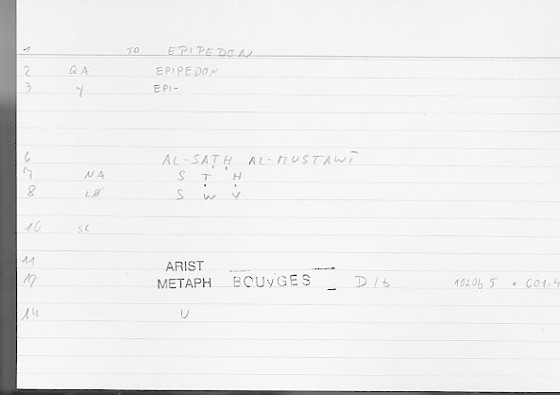 1 TO EPIPEDON
2 QA EPIPEDON
3 Y EPI-
6 AL-SAṬḤ AL-MUSTAWĪ
7 NA S Ṭ Ḥ
8 S W Y
10 SC
11 ARIST
12 METAPH BOUYGES D 1b 1020b 5 • 601.4
14 U